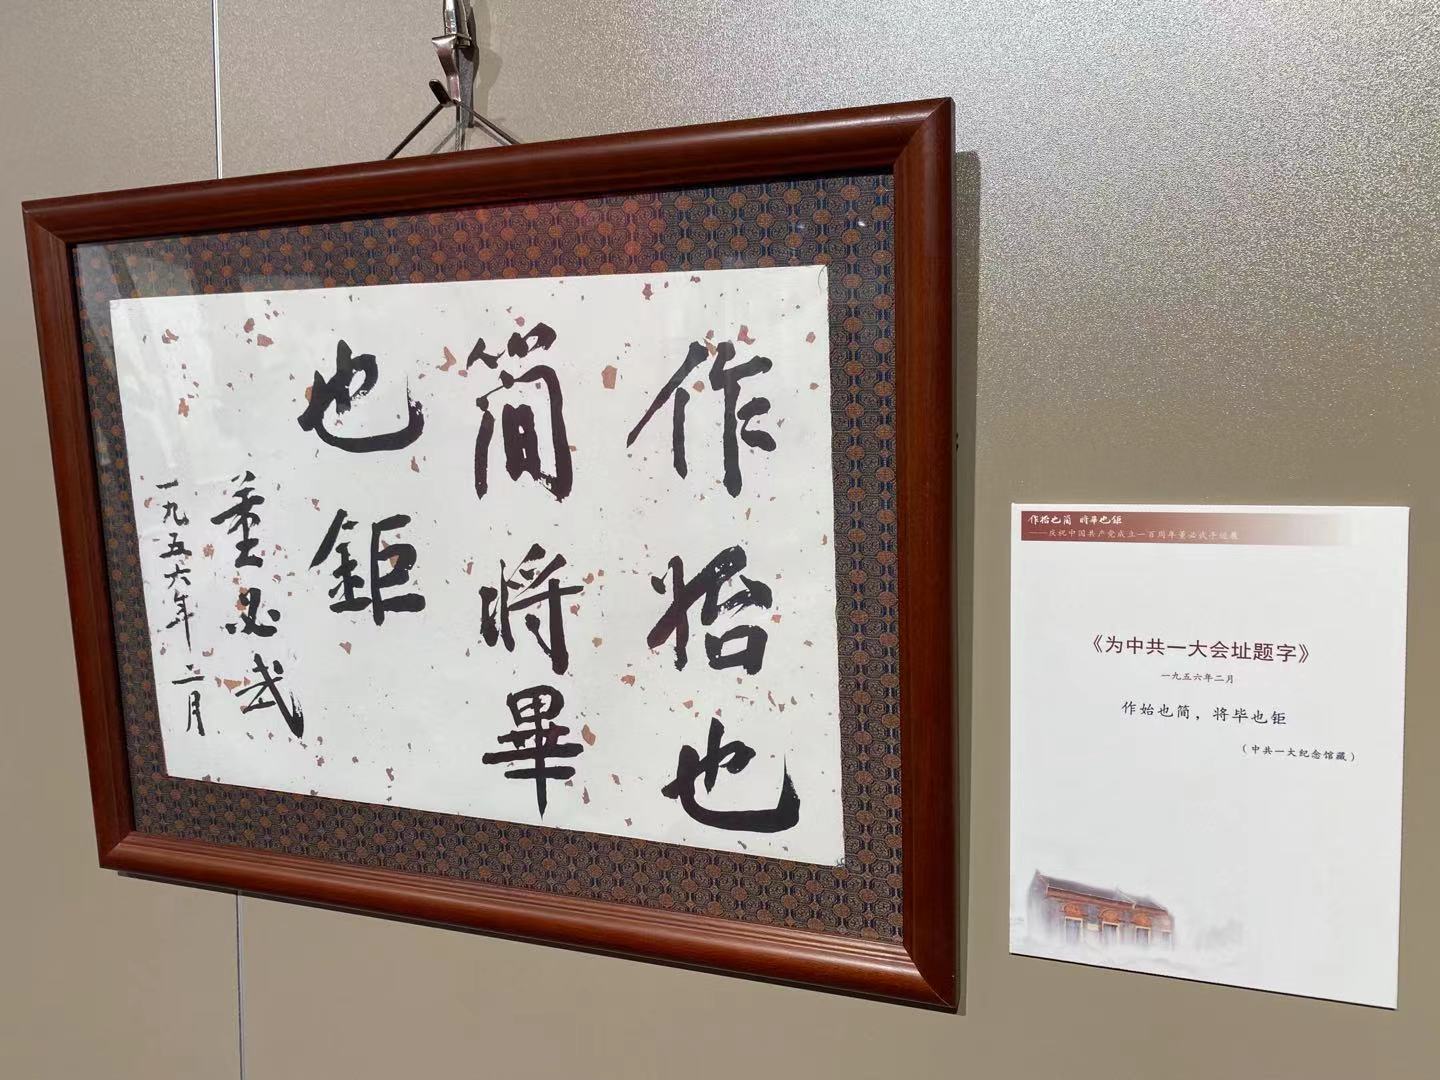 作始也
簡将畢
也鉅
董必武
一九五六年二月
作始也簡 将畢也鉅
——庆祝中国共产党成立一百周年董必武手迹展
《为中共一大会址题字》
一九五六年二月
作始也简，将毕也钜
（中共一大纪念馆藏）